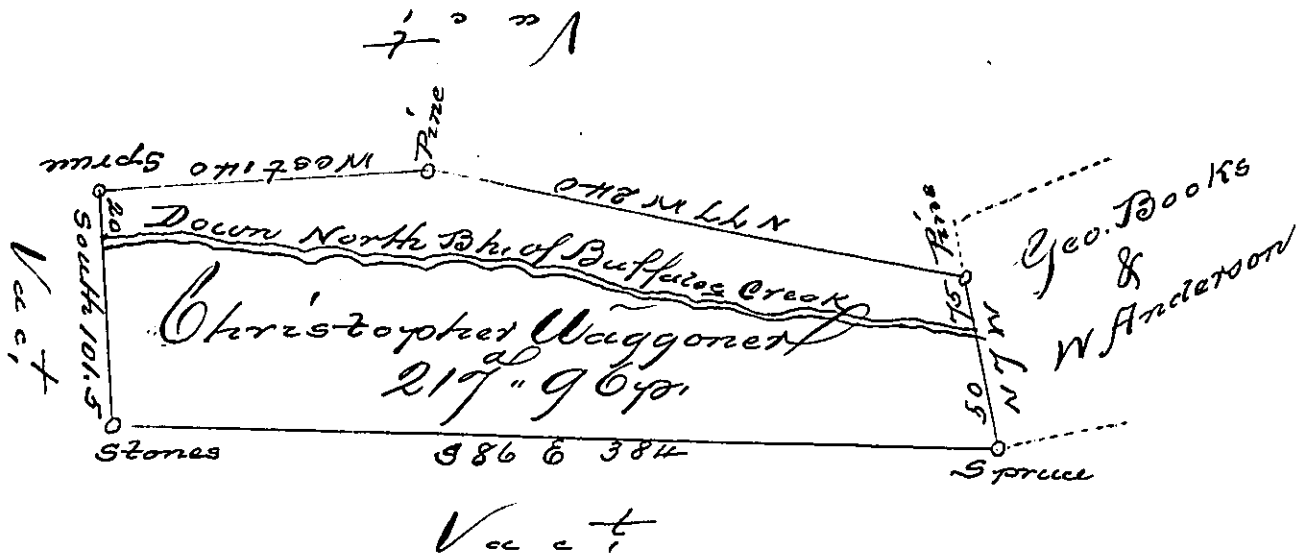 Vac.t
Pine
Spruce
West 140
N 77 W 240
Pine
Geo. Books
&
W Anderson
20
South 101.5
Vac.t
Down North Bh. of Buffaloe Creek
Christopher Waggoner
217 a " 96 p.
75
50
Stones
S 86 E 384
Spruce
Vac.t